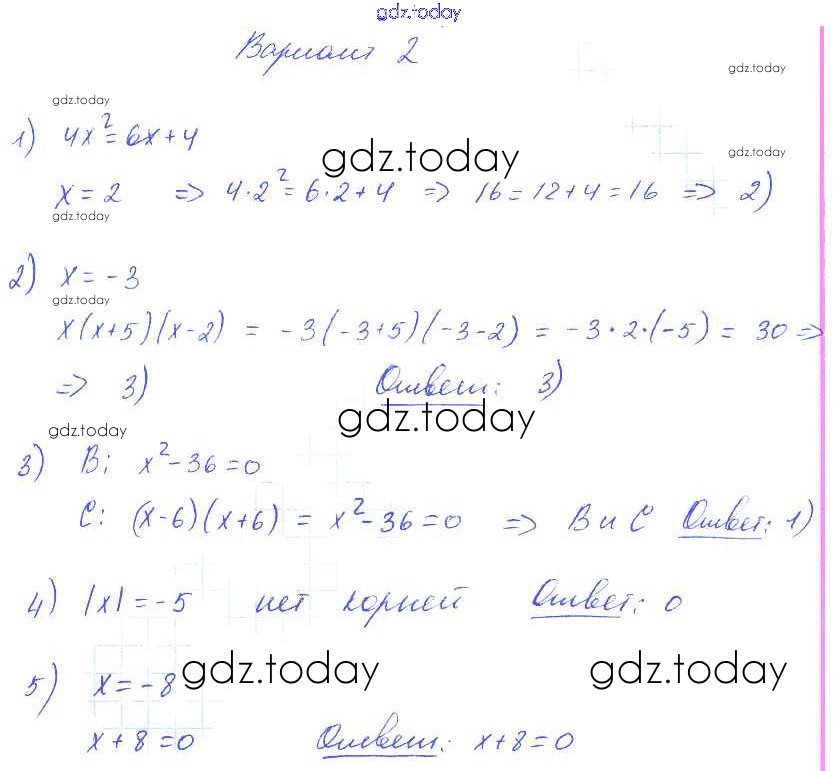 gdz.today
Вариант 2
gdz.today
gdz.today
1) 4x²=6x+4
gdz.today
gdz.today
x=2 => 4·2²=6·2+4 => 16=12+4=16 => 2)
gdz.today
2) x=-3
gdz.today
x(x+5)(x-2) = -3(-3+5)(-3-2) = -3·2·(-5) = 30 =>
=> 3) Ответ: 3)
gdz.today
gdz.today
3) B: x²-36=0
C: (x-6)(x+6) = x²-36=0 => B и C Ответ: 1)
4) |x|=-5 нет корней Ответ: 0
gdz.today
gdz.today
5) x=-8
x+8=0 Ответ: x+8=0